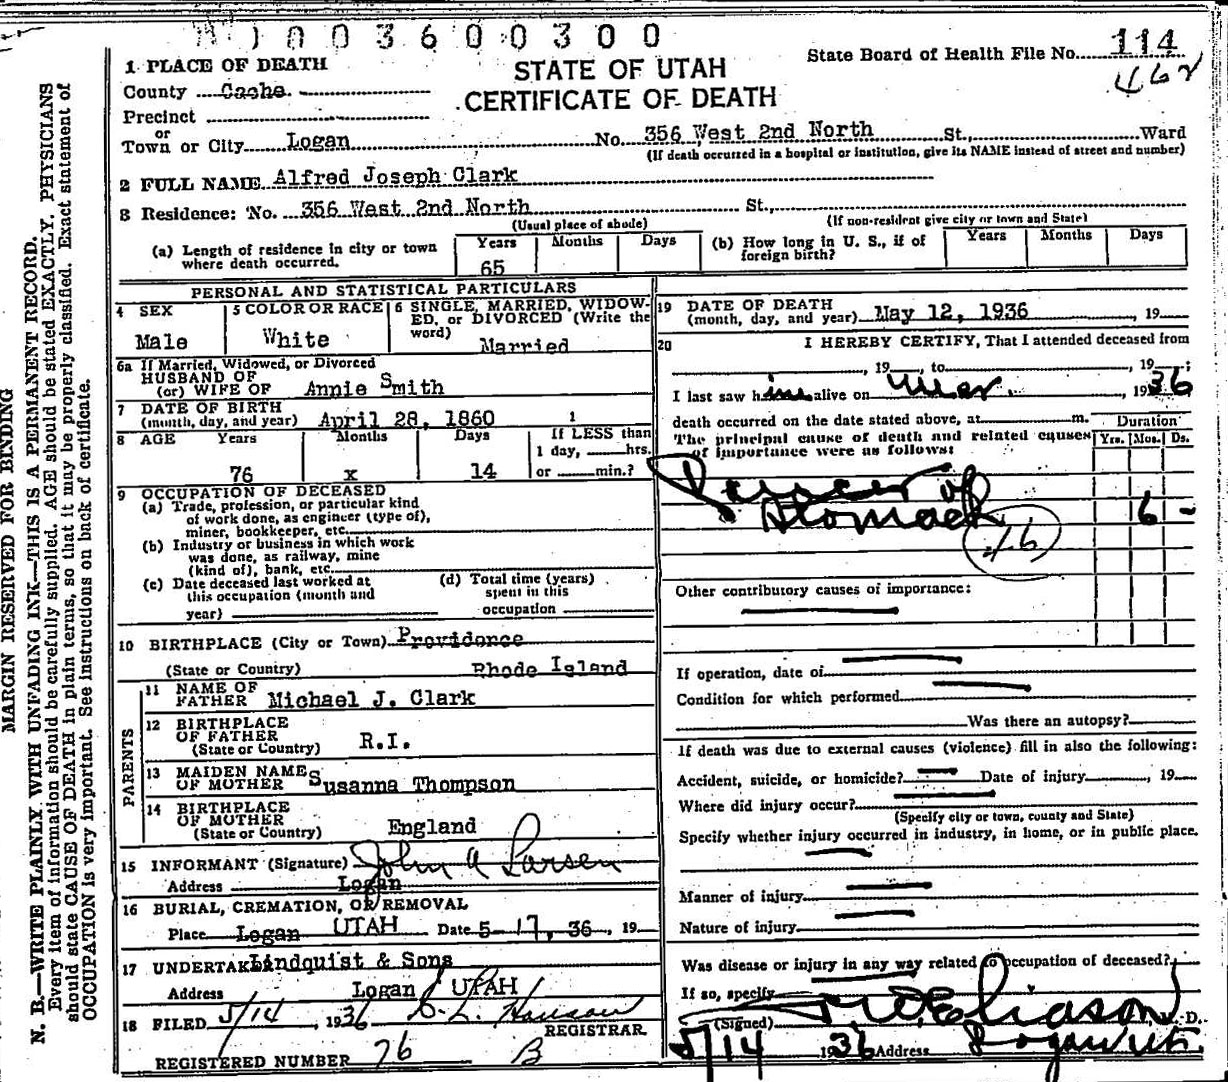 0 0 3 6 0 0 3 0 0
State Board of Health File No. 114
462
STATE OF UTAH
CERTIFICATE OF DEATH
1 PLACE OF DEATH
County Cache
Precinct
or
Town or City Logan No. 356 West 2nd North St., Ward
(If death occurred in a hospital or institution, give its NAME instead of street and number)
2 FULL NAME Alfred Joseph Clark
3 Residence: No. 356 West 2nd North St.,
(Usual place of abode) (If non-resident give city or town and State)
(a) Length of residence in city or town where death occurred. Years 65 Months Days
(b) How long in U. S., if of foreign birth? Years Months Days
PERSONAL AND STATISTICAL PARTICULARS
4 SEX Male
5 COLOR OR RACE White
6 SINGLE, MARRIED, WIDOWED, or DIVORCED (Write the word) Married
6a If Married, Widowed, or Divorced
HUSBAND OF
(or) WIFE OF Annie Smith
7 DATE OF BIRTH
(month, day, and year) April 28, 1860 1
8 AGE Years Months Days If LESS than
1 day, hrs.
76 x 14 or min.?
9 OCCUPATION OF DECEASED
(a) Trade, profession, or particular kind
of work done, as engineer (type of),
miner, bookkeeper, etc.
(b) Industry or business in which work
was done, as railway, mine
(kind of), bank, etc.
(c) Date deceased last worked at
this occupation (month and
year)
(d) Total time (years)
spent in this
occupation
10 BIRTHPLACE (City or Town) Providence
(State or Country) Rhode Island
PARENTS
11 NAME OF
FATHER Michael J. Clark
12 BIRTHPLACE
OF FATHER
(State or Country) R.I.
13 MAIDEN NAME
OF MOTHER Susanna Thompson
14 BIRTHPLACE
OF MOTHER
(State or Country) England
15 INFORMANT (Signature) John A Larsen
Address Logan
16 BURIAL, CREMATION, OR REMOVAL
Place Logan UTAH Date 5-17, 36, 19
17 UNDERTAKER Lindquist & Sons
Address Logan UTAH
18 FILED 5/14, 1936
REGISTRAR
REGISTERED NUMBER 76 B
19 DATE OF DEATH
(month, day, and year) May 12, 1936, 19
20 I HEREBY CERTIFY, That I attended deceased from
, 19 , to , 19 ;
I last saw him alive on Mar 1936
death occurred on the date stated above, at m.
Duration
The principal cause of death and related causes Yrs. Mos. Ds.
of importance were as follows:
of
Stomach 6 -
46
Other contributory causes of importance:
If operation, date of
Condition for which performed
Was there an autopsy?
If death was due to external causes (violence) fill in also the following:
Accident, suicide, or homicide? Date of injury , 19
Where did injury occur?
(Specify city or town, county and State)
Specify whether injury occurred in industry, in home, or in public place.
Manner of injury
Nature of injury
Was disease or injury in any way related to occupation of deceased?
If so, specify
(Signed) Eliason M. D.
5/14 1936 Address Logan Ut.
MARGIN RESERVED FOR BINDING
N. B.—WRITE PLAINLY WITH UNFADING INK—THIS IS A PERMANENT RECORD.
Every item of information should be carefully supplied. AGE should be stated EXACTLY. PHYSICIANS
should state CAUSE OF DEATH in plain terms, so that it may be properly classified. Exact statement of
OCCUPATION is very important. See instructions on back of certificate.